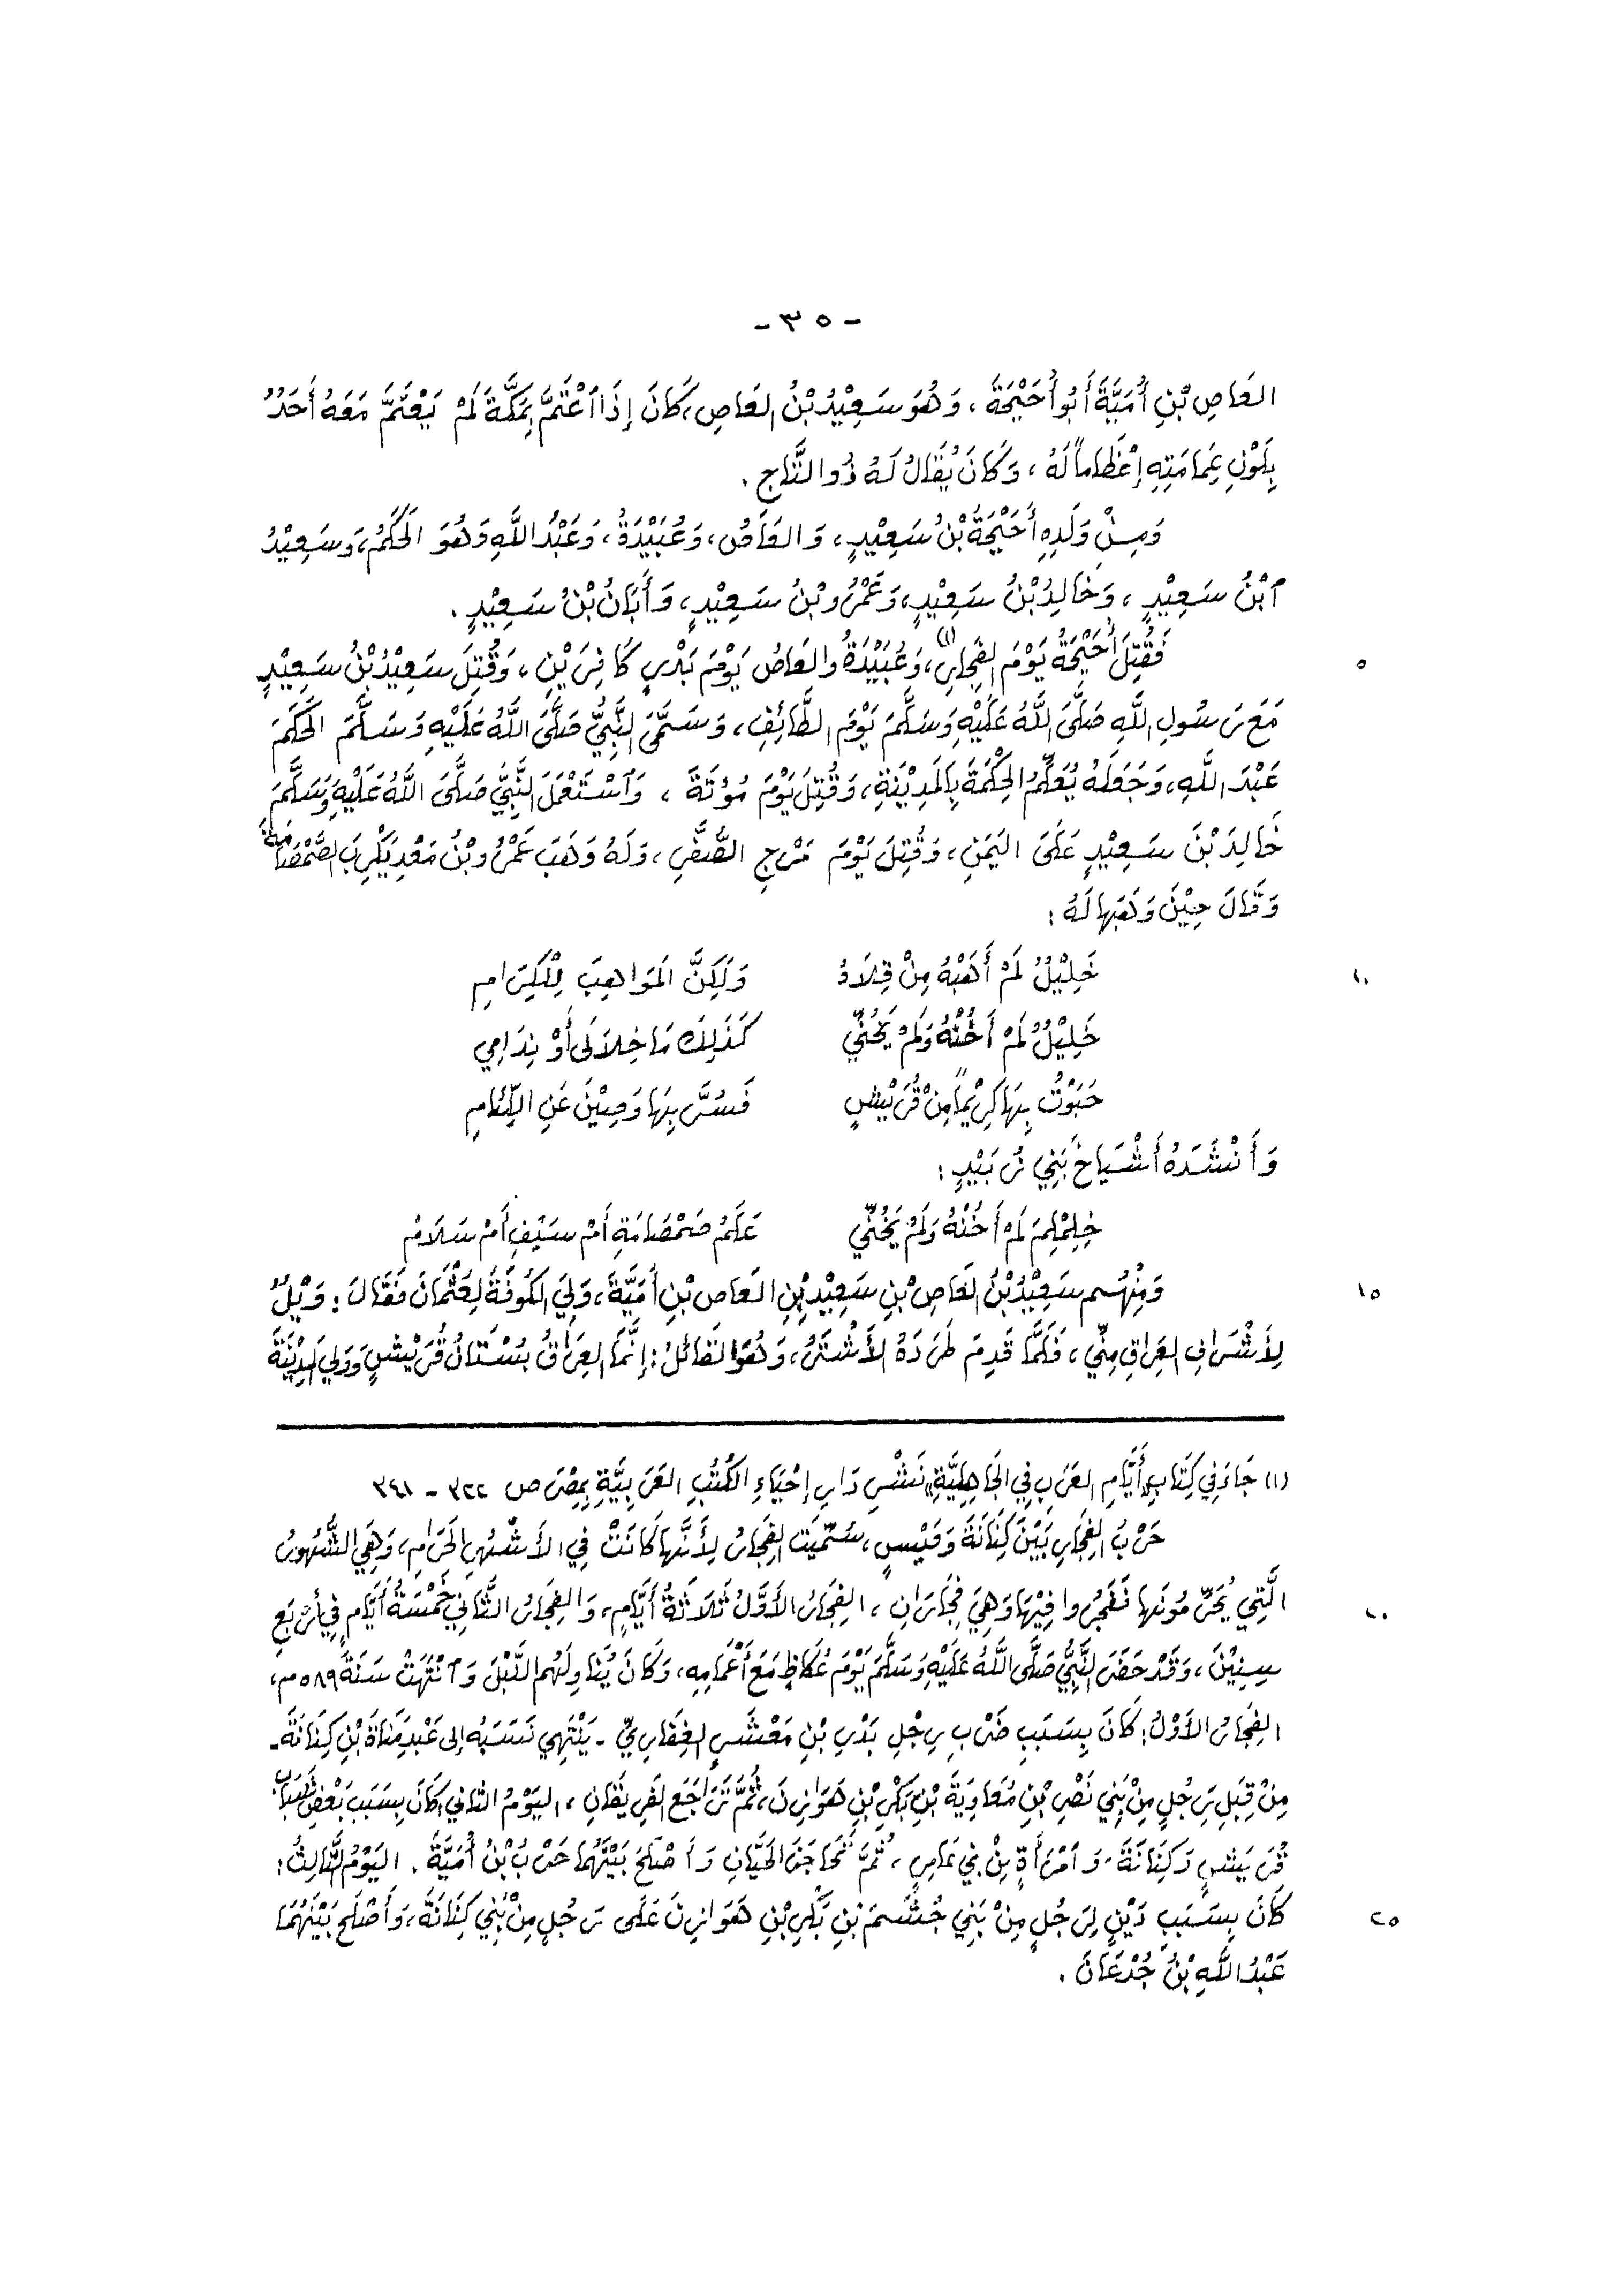 - ٣٥ -
العَاصِ بْنِ أُمَيَّةَ أَبُو أُحَيْحَةَ، وَهُوَ سَعِيْدُ بْنُ العَاصِ، كَانَ إِذَا ٱعْتَمَّ بِمَكَّةَ لَمْ يَعْتَمَّ مَعَهُ أَحَدٌ
بِلَوْنِ عِمَامَتِهِ إِعْظَاماً لَهُ، وَكَانَ يُقَالُ لَهُ ذُو التَّاجِ.
وَمِنْ وَلَدِهِ أُحَيْحَةُ بْنُ سَعِيْدٍ، وَالعَاصُ، وَعُبَيْدَةُ، وَعَبْدُ اللَّهِ وَهُوَ الحَكَمُ، وَسَعِيْدُ
ٱبْنُ سَعِيْدٍ، وَخَالِدُ بْنُ سَعِيْدٍ، وَعَمْرُو بْنُ سَعِيْدٍ، وَأَبَانُ بْنُ سَعِيْدٍ.
فَقُتِلَ أُحَيْحَةُ يَوْمَ الفِجَارِ(١)، وَعُبَيْدَةُ والعَاصُ يَوْمَ بَدْرٍ كَافِرَيْنِ، وَقُتِلَ سَعِيْدُ بْنُ سَعِيْدٍ ٥
مَعَ رَسُولِ اللَّهِ صَلَّى اللَّهُ عَلَيْهِ وَسَلَّمَ يَوْمَ الطَّائِفِ، وَسَمَّى النَّبِيُّ صَلَّى اللَّهُ عَلَيْهِ وَسَلَّمَ الحَكَمَ
عَبْدَ اللَّهِ، وَجَعَلَهُ يُعَلِّمُ الحِكْمَةَ بِالمَدِيْنَةِ، وَقُتِلَ يَوْمَ مُؤْتَةَ، وَٱسْتَعْمَلَ النَّبِيُّ صَلَّى اللَّهُ عَلَيْهِ وَسَلَّمَ
خَالِدَ بْنَ سَعِيْدٍ عَلَى اليَمَنِ، وَقُتِلَ يَوْمَ مَرْجِ الصُّفَّرِ، وَلَهُ وَهَبَ عَمْرُو بْنُ مَعْدِيكَرِبَ الصَّمْصَامَةَ
وَقَالَ حِيْنَ وَهَبَها لَهُ:
خَلِيْلٌ لَمْ أَهَبْهُ مِنْ قِلَادٍ وَلَكِنَّ المَوَاهِبَ لِلْكِرَامِ ١٠
خَلِيْلٌ لَمْ أَخُنْهُ وَلَمْ يَخُنِّي كَذَلِكَ مَا خِلَالَى أَوْ نِدَامِي
حَبَوْتُ بِهَا كَرِيْماً مِنْ قُرَيْشٍ فَسُرَّ بِهَا وَصِيْنَ عَنِ اللِّئَامِ
وَأَنْشَدَهُ أَشْيَاخُ بَنِي زُبَيْدٍ:
خِلِمْلِمَ لَمْ أَخُنْهُ وَلَمْ يَخُنِّي عَلَمُ صَمْصَامَةِ أَمْ سَيْفِ أَمْ سَلَامْ
وَمِنْهُم سَعِيْدُ بْنُ العَاصِ بْنِ سَعِيْدِ بْنِ العَاصِ بْنِ أُمَيَّةَ، وَلِيَ الكُوفَةَ لِعُثْمَانَ فَقَالَ: وَيْلٌ ١٥
لِأَشْرَافِ العِرَاقِ مِنِّي، فَلَمَّا قَدِمَ طَرَدَهُ الأَشْتَرُ، وَهُوَ القَائِلُ: إِنَّمَا العِرَاقُ بُسْتَانُ قُرَيْشٍ وَوَلِيَ المَدِيْنَةَ
(١) جَاءَ فِي كِتَابِ «أَيَّامِ العَرَبِ فِي الجَاهِلِيَّةِ» نَشْرِ دَارِ إِحْيَاءِ الكُتُبِ العَرَبِيَّةِ بِمِصْرَ ص ٣٢٢ - ٣٤١
حَرْبُ الفِجَارِ بَيْنَ كِنَانَةَ وَقَيْسٍ، سُمِّيَتِ الفِجَارُ لِأَنَّهَا كَانَتْ فِي الأَشْهُرِ الحُرَامِ، وَهِيَ الشُّهُورُ
الَّتِي يُحَرِّمُونَها فَفَجَرُوا فِيْهَا وَهِيَ فِجَارَانِ، الفِجَارُ الأَوَّلُ ثَلَاثَةُ أَيَّامٍ، وَالفِجَارُ الثَّانِي خَمْسَةُ أَيَّامٍ فِي أَرْبَعِ ٢٠
سِنِيْنَ، وَقَدْ حَضَرَ النَّبِيُّ صَلَّى اللَّهُ عَلَيْهِ وَسَلَّمَ يَوْمَ عُكَاظٍ مَعَ أَعْمَامِهِ، وَكَانَ يُنَاوِلُهُمُ النَّبْلَ وَٱنْتَهَتْ سَنَةَ ٥٨٩م،
الفِجَارُ الأَوَّلُ: كَانَ بِسَبَبِ ضَرْبِ رِجْلِ بَدْرِ بْنِ مَعْشَرٍ الغِفَارِيِّ - يَنْتَهِي نَسَبُه إلى عَبْدِ مَنَاةَ بْنِ كِنَانَةَ -
مِنْ قِبَلِ رَجُلٍ مِنْ بَنِي نَصْرِ بْنِ مُعَاوِيَةَ بْنِ بَكْرِ بْنِ هَوَازِنَ، ثُمَّ تَرَاجَعَ الفَرِيقَانِ، اليَوْمُ الثاني: كَانَ بِسَبَبِ بَعْضِ شَبَابِ
قُرَيْشٍ وَكِنَانَةَ، وَٱمْرَأَةٍ مِنْ بَنِي عَامِرٍ، ثُمَّ تَحَاجَزَ الحَيَّانِ وَأَصْلَحَ بَيْنَهُمَا حَرْبُ بْنُ أُمَيَّةَ. اليَوْمُ الثَّالِثُ:
كَانَ بِسَبَبِ دَيْنٍ لِرَجُلٍ مِنْ بَنِي جُشَمَ بْنِ بَكْرِ بْنِ هَوَازِنَ عَلَى رَجُلٍ مِنْ بَنِي كِنَانَةَ، وَأَصْلَحَ بَيْنَهُمَا ٢٥
عَبْدُ اللَّهِ بْنُ جُدْعَانَ.